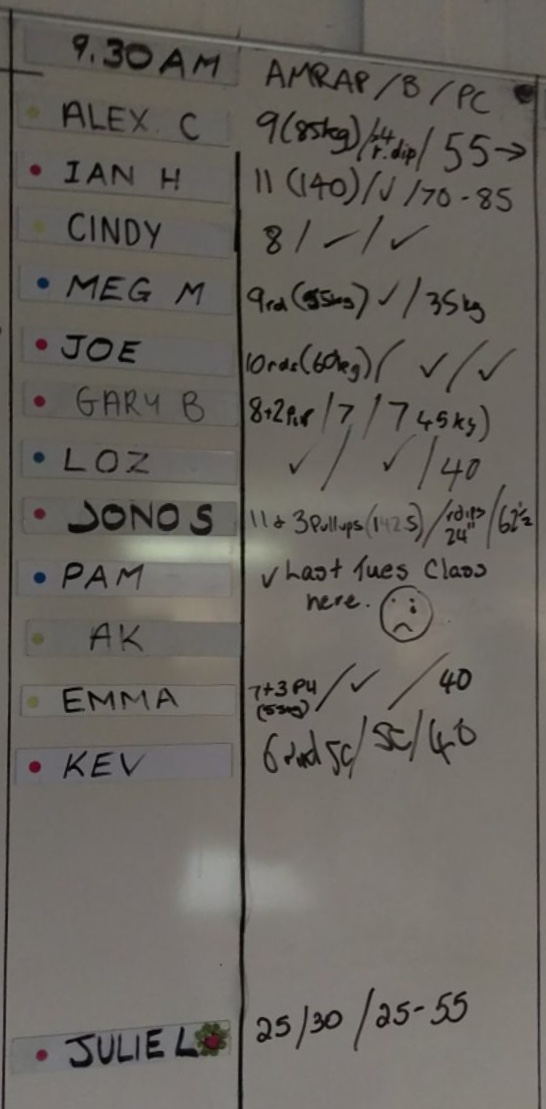 9.30AM AMRAP/B/PC
ALEX. C 9(85kg)/24" r.dip/55→
IAN H 11(140)/✓/70-85
CINDY 8/✓/✓
MEG M 9rd(55kg)✓/35kg
JOE 10rds(60kg)/✓/✓
GARY B 8+2PU/7/7 45kg)
LOZ ✓/✓/40
JONO S 11+3Pullups(142.5)/rdips 24"/62½
PAM ✓Last Tues Class
here.
AK
EMMA 7+3PU/✓/40
(55kg)
KEV 6rnd SC/SC/40
JULIE L 25/30/25-55